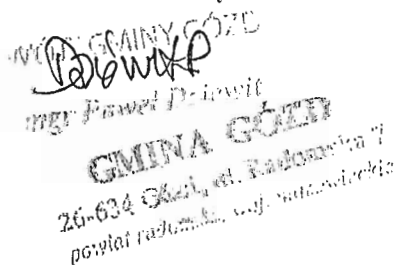 WÓJT GMINY GÓZD
mgr Paweł Dziewit
GMINA GÓZD
26-634 Gózd, ul. Radomska 7
powiat radomski, woj. mazowieckie